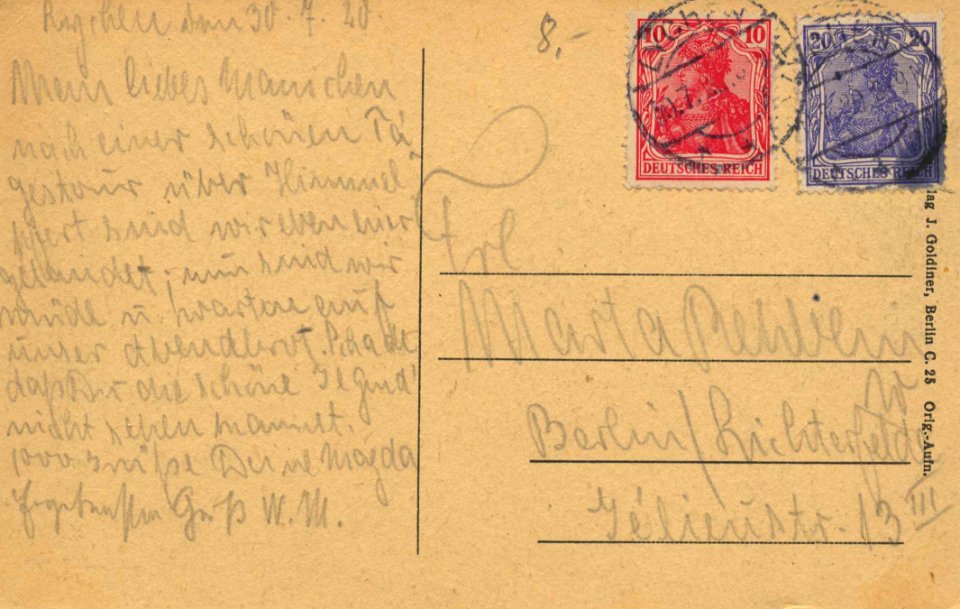 Lychen den 30.7.20
8.-
Mein liebes Manschen
nach einer schönen Ta-
gestour über Himmel-
pfort sind wir eben hier
gelandet, nun sind wir
müde u. warten auf
unser Abendbrot. Schade
daß Du die schöne Gegend
nicht sehen kannst.
1000 Grüße Deine Magda
Ergebensten Gruß W. M.
10 10
DEUTSCHES REICH
20 20
DEUTSCHES REICH
LYCHEN
30.7.2
Frl.
Marta
Berlin/Lichterfelde
W
13 III
lag J. Goldiner, Berlin C. 25 Orig.-Aufn.